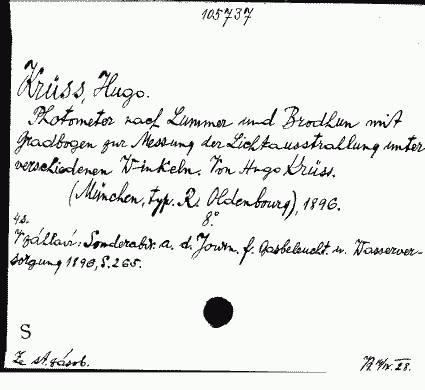 105737
Krüss, Hugo.
Photometer nach Lummer und Brodhun mit
Gradbogen zur Messung der Lichtausstrahlung unter
verschiedenen Winkeln. Von Hugo Krüss.
(München, typ. R. Oldenbourg), 1896.
8°
4s.
Sonderabdr. a. d. Journ. f. Gasbeleucht. u. Wasserver-
sorgung 1896, S. 265.
S
Ze